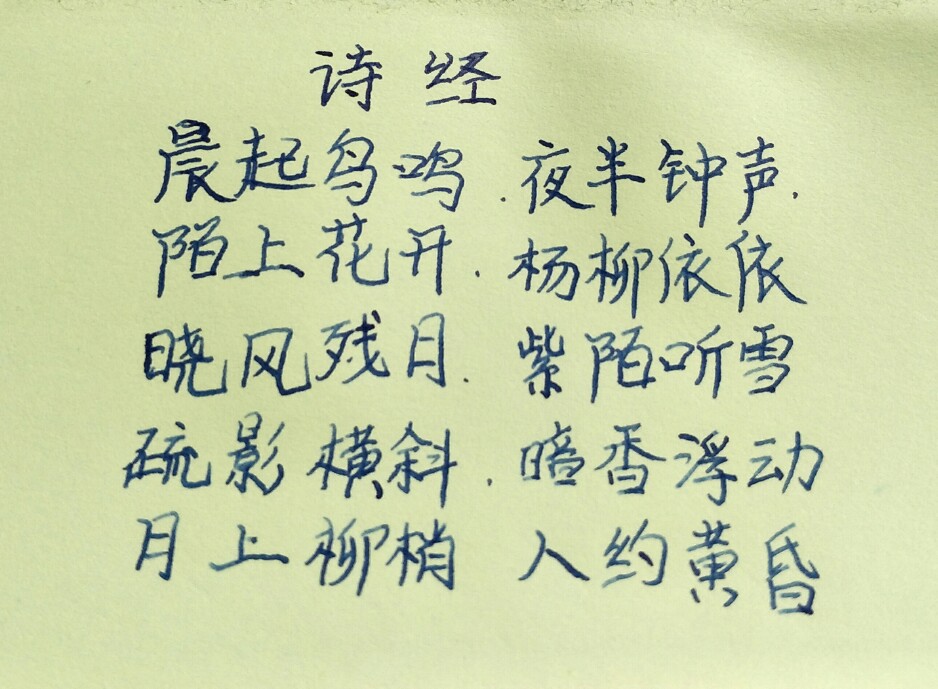 诗经
晨起鸟鸣.夜半钟声.
陌上花开.杨柳依依
晓风残月.紫陌听雪
疏影横斜.暗香浮动
月上柳梢 人约黄昏